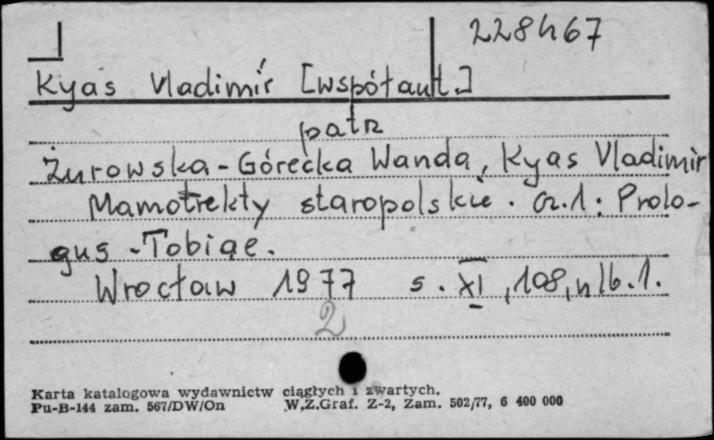 228467
Kyas Vladimír [współaut.]
patrz
Żurowska-Górecka Wanda, Kyas Vladimír
Mamotrekty staropolskie. Cz.1: Prolo-
gus - Tobiae.
Wrocław 1977 s. XI, 108, nlb.1.
2
Karta katalogowa wydawnictw ciągłych i zwartych.
Pu-B-144 zam. 567/DW/On W.Z.Graf. Z-2, Zam. 502/77, 6 400 000